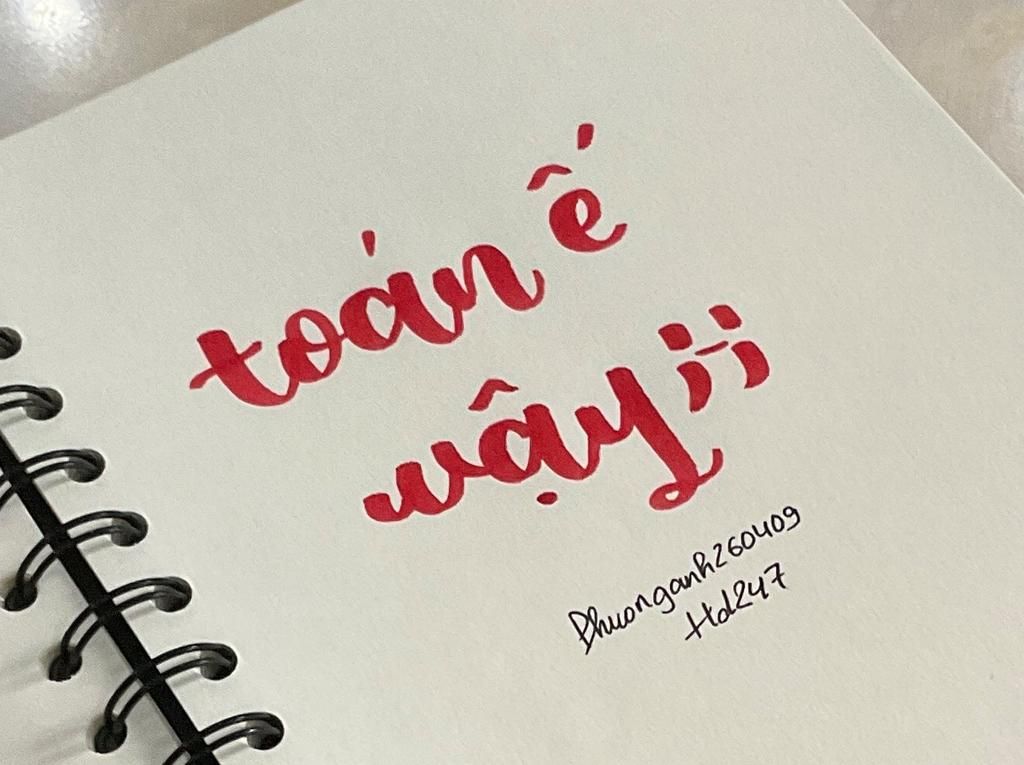 toán ế
vậy;-;
Phuonganh260409
Hd247